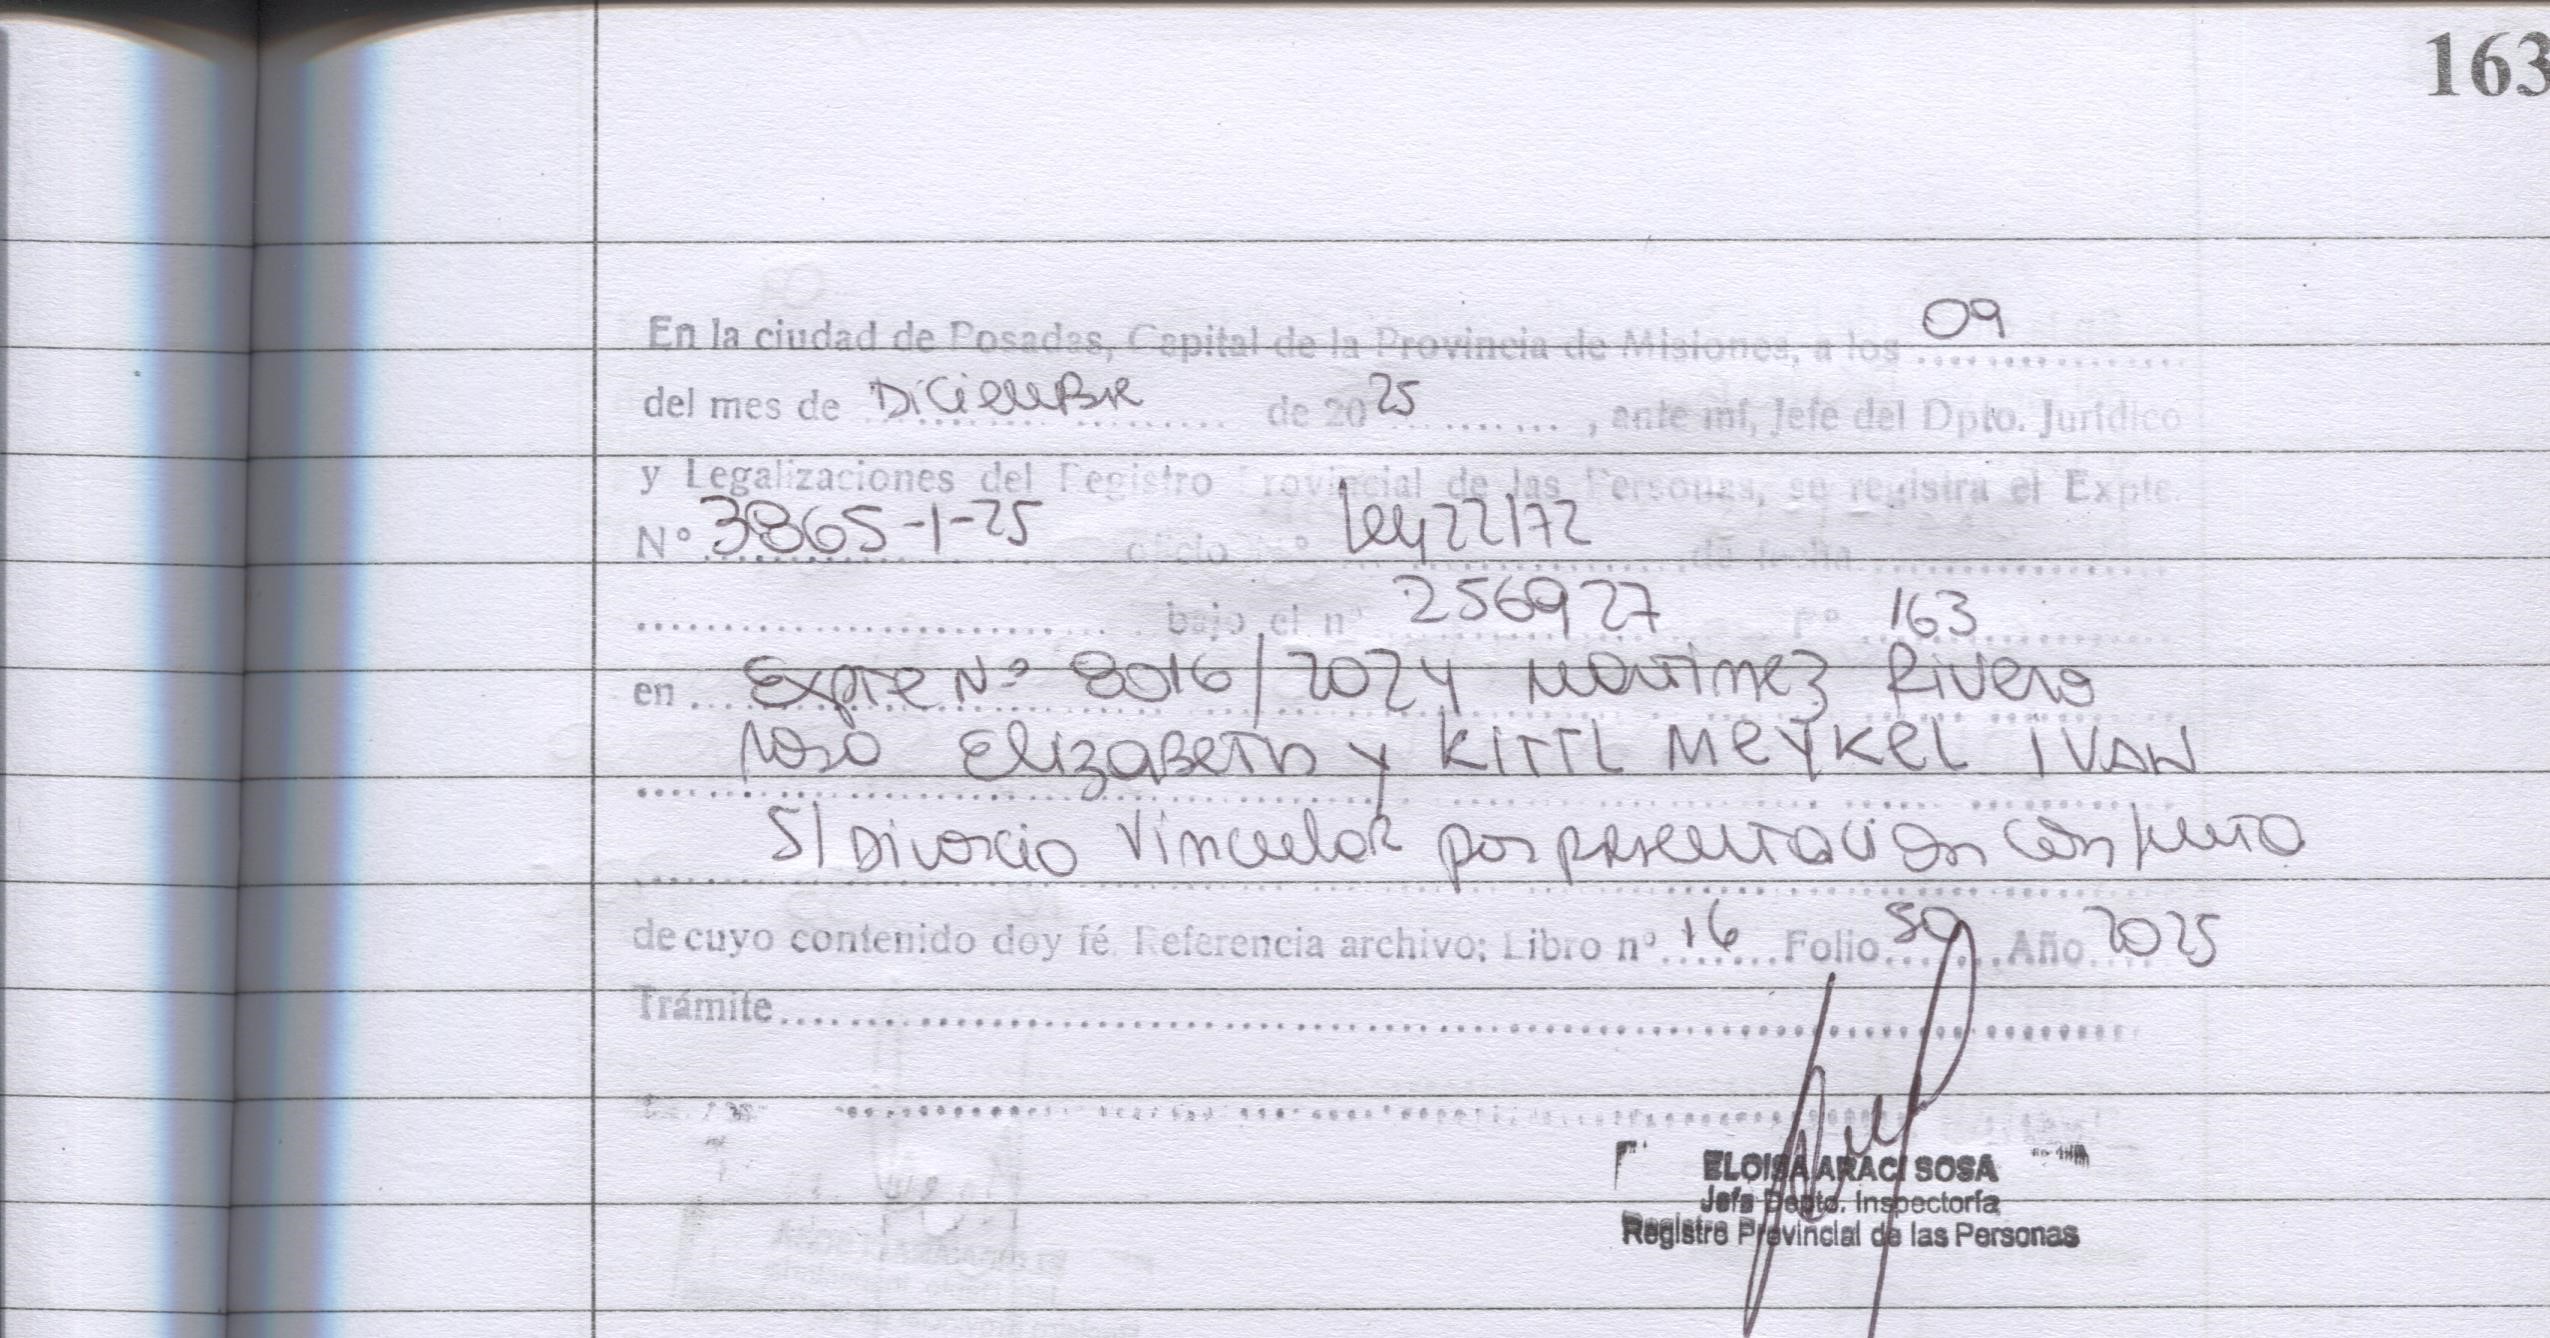 163
En la ciudad de Posadas, Capital de la Provincia de Misiones, a los 09
del mes de Diciembre de 2025, ante mí, Jefe del Dpto. Jurídico
y Legalizaciones del Registro Provincial de las Personas, se registra el Expte
Nº 3865-1-25 oficio nº Ley 22172 de fecha
bajo el nº 256927 Fº 163
en Expte Nº 8016/2024 Martinez Rivero
Rosa Elizabeth y KITTL MEYKEL IVAN
S/ Divorcio Vincular por presentacion conjunta
de cuyo contenido doy fé. Referencia archivo: Libro nº 16 Folio 59 Año 2025
Trámite
ELOISA ARACI SOSA
Jefa Depto. Inspectoría
Registro Provincial de las Personas